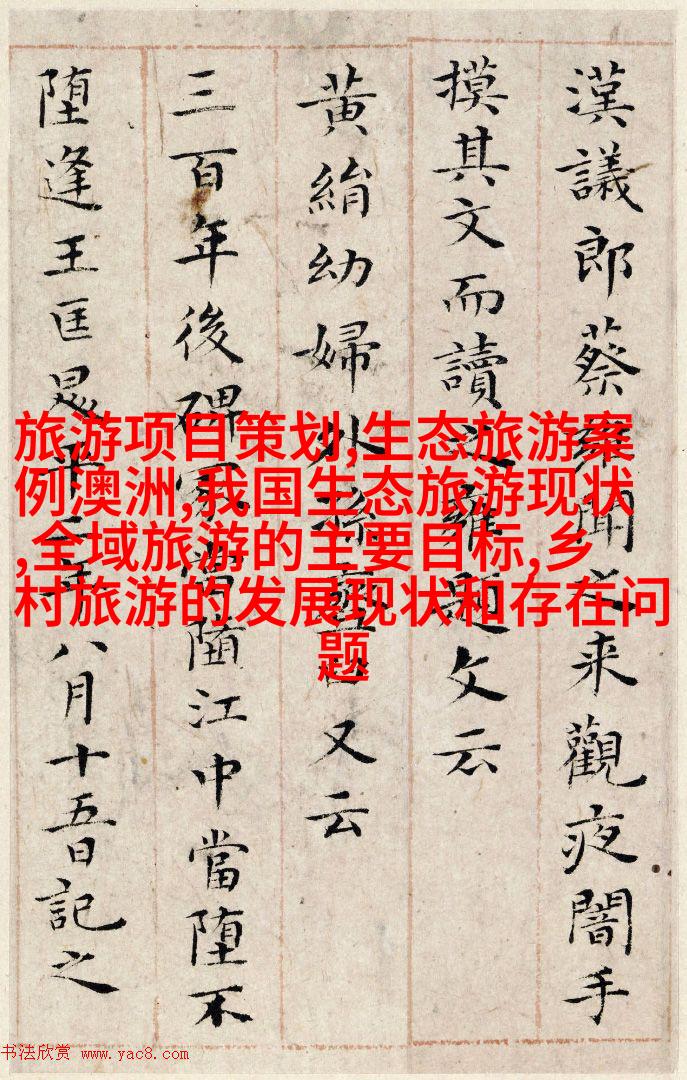 漢議郎蔡雍聞之来觀夜闇手
摸其文而讀之雍題文云
黄絹幼婦外孫臼又云
三百年後碑冢當堕江中當堕不
堕逢王匡昇平二年八月十五日記之
旅游项目策划,生态旅游案
例澳洲,我国生态旅游现状
,全域旅游的主要目标,乡
村旅游的发展现状和存在问
题
书法欣赏 www.yac8.com